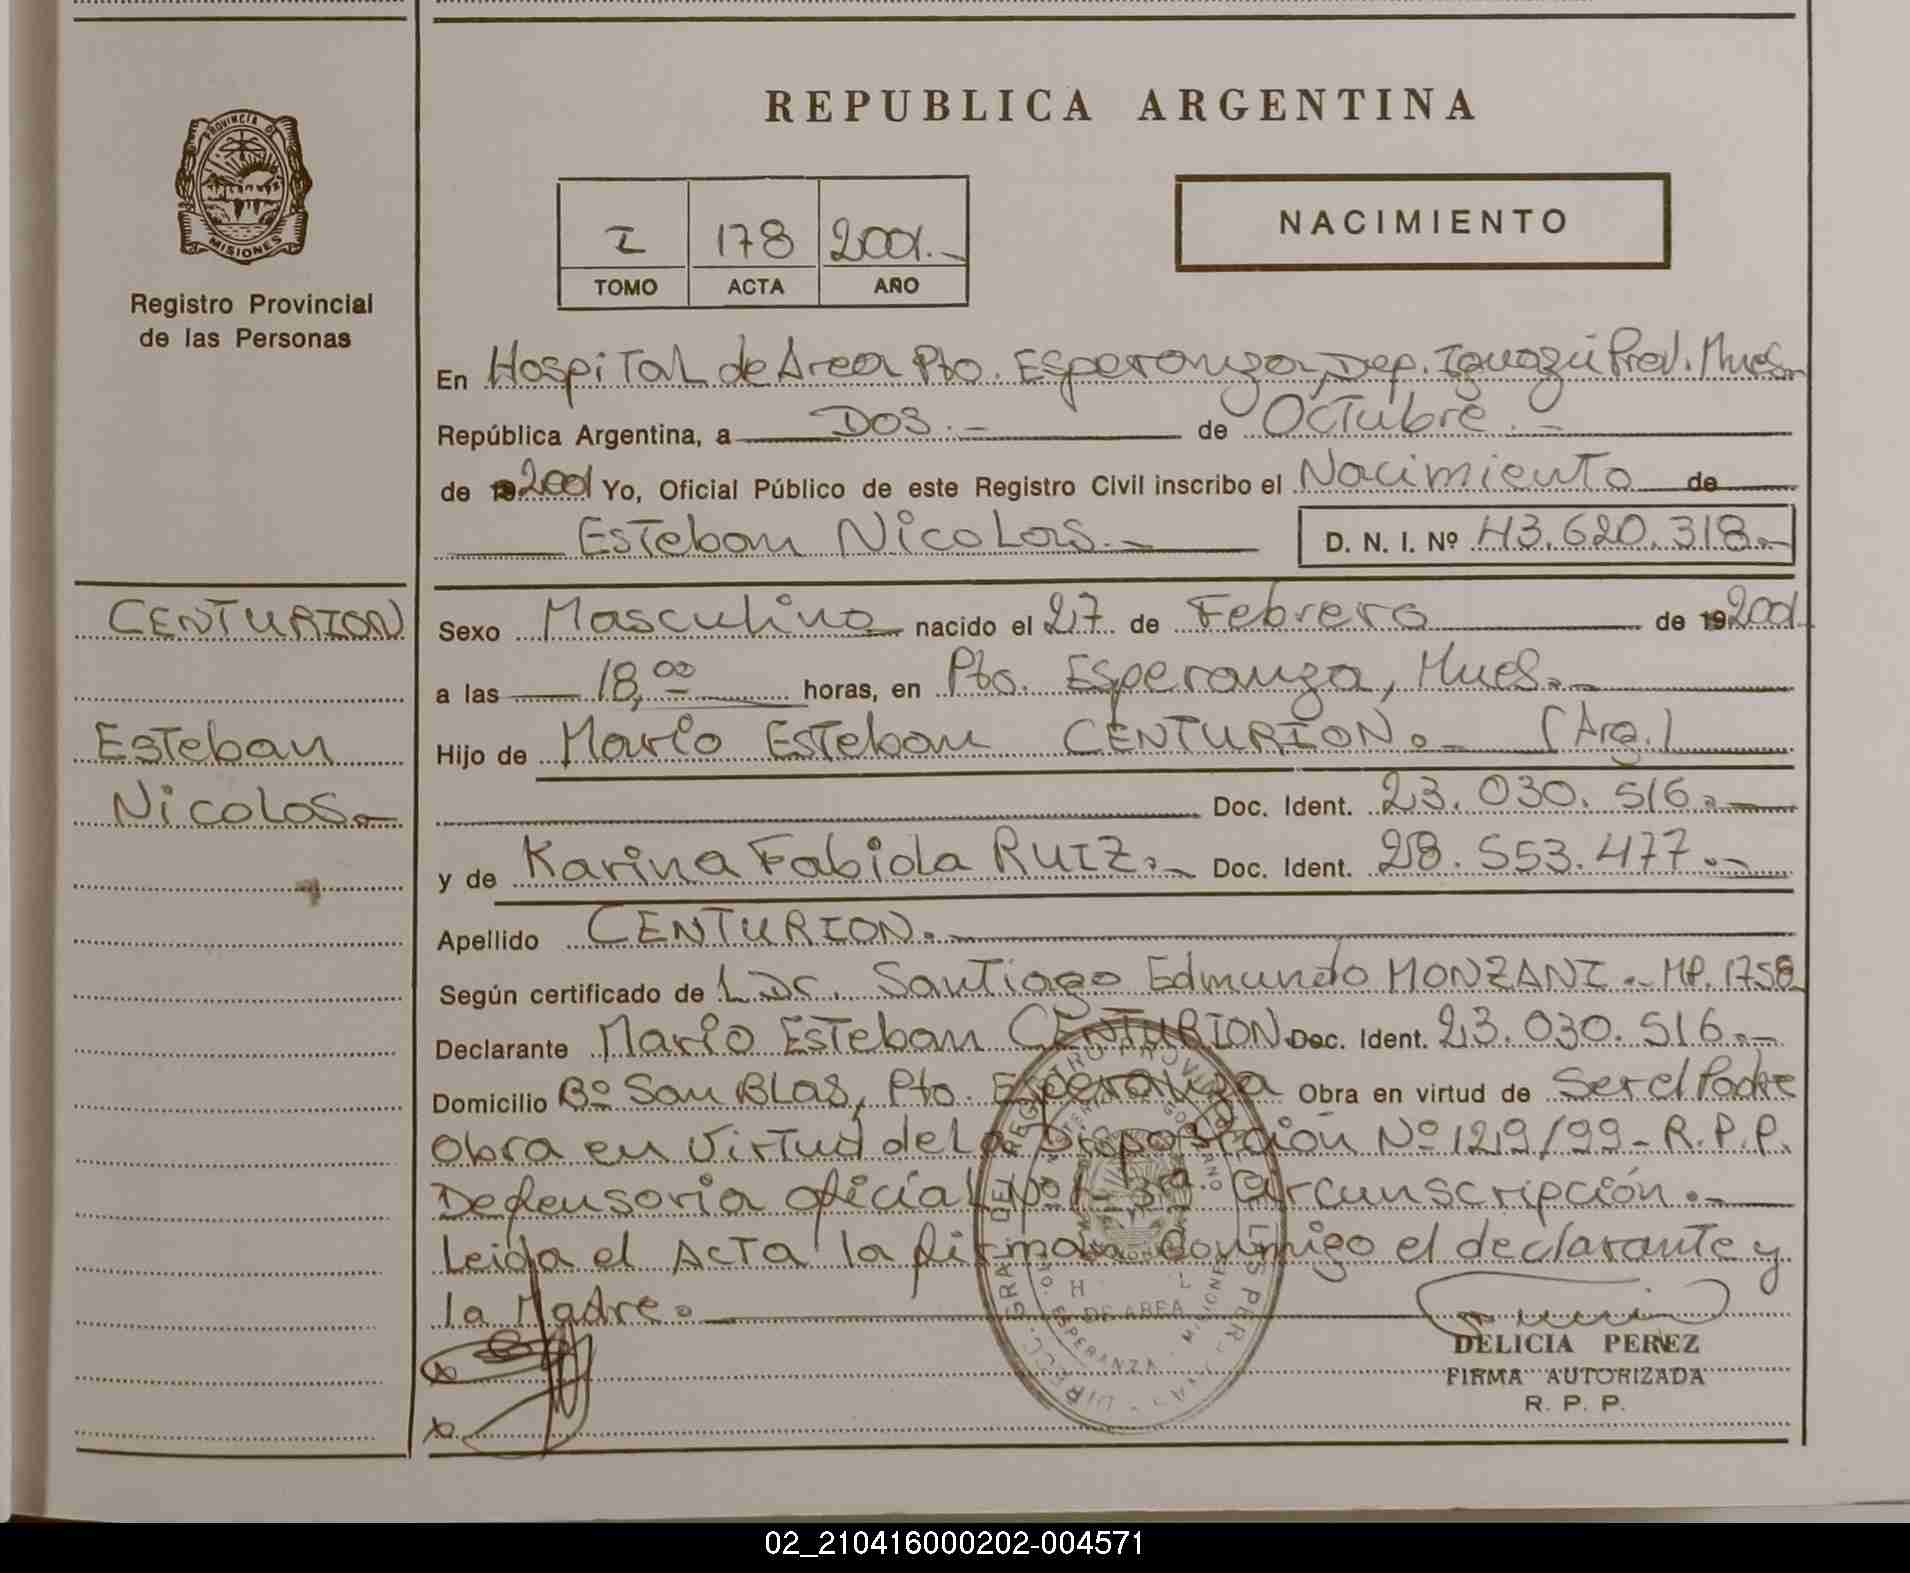 REPUBLICA ARGENTINA
PROVINCIA DE
MISIONES
Registro Provincial
de las Personas
I 178 2001.-
TOMO ACTA AÑO
NACIMIENTO
En Hospital de Area Pto. Esperanza, Dep. Iguazú Prov. Mnes
República Argentina, a Dos.- de Octubre.-
de 19 2001 Yo, Oficial Público de este Registro Civil inscribo el Nacimiento de
Esteban Nicolas.- D. N. I. Nº 43.620.318.-
CENTURION
Esteban
Nicolas.-
Sexo Masculino nacido el 27 de Febrero de 19 2001.
a las 18,00 horas, en Pto. Esperanza, Mnes.-
Hijo de Mario Esteban CENTURION.- (Arg.)
Doc. Ident. 23.030.516.-
y de Karina Fabiola RUIZ.- Doc. Ident. 28.553.477.-
Apellido CENTURION.-
Según certificado de L Dr. Santiago Edmundo MONZANI.- MP. 1758
Declarante Mario Esteban CENTURION Doc. Ident. 23.030.516.-
Domicilio Bº San Blas, Pto. Esperanza Obra en virtud de Ser el Padre
Obra en Virtud de La Disposición Nº 129/99 - R.P.P.
Defensoria oficial Nº 1- 3ra. Circunscripción.-
Leida el Acta la firman conmigo el declarante y
la Madre.
DELICIA PEREZ
FIRMA AUTORIZADA
R. P. P.
DE AREA
02_210416000202-004571